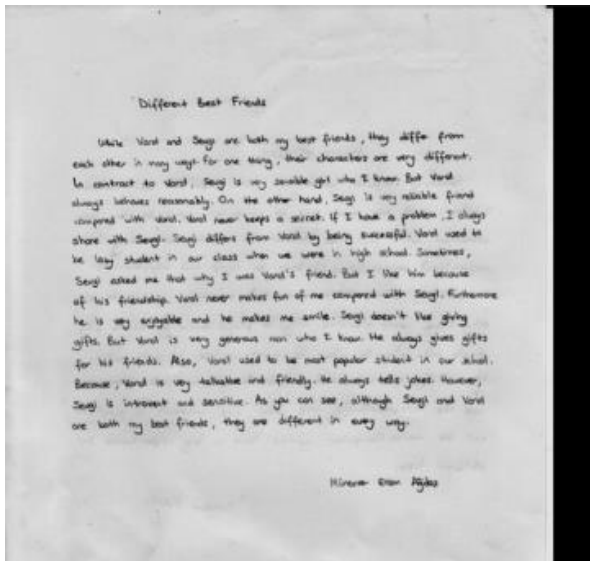 Different Best Friends
While Varol and Sevgi are both my best friends, they differ from
each other in many ways. For one thing, their characters are very different.
In contract to Varol, Sevgi is very sensible girl who I know. But Varol
always behaves reasonably. On the other hand, Sevgi is very reliable friend
compared with Varol. Varol never keeps a secret. If I have a problem, I always
share with Sevgi. Sevgi differs from Varol by being successful. Varol used to
be lazy student in our class when we were in high school. Sometimes,
Sevgi asked me that why I was Varol's friend. But I like him because
of his friendship. Varol never makes fun of me compared with Sevgi. Furthermore
he is very enjoyable and he makes me smile. Sevgi doesn't like giving
gifts. But Varol is very generous man who I know. He always gives gifts
for his friends. Also, Varol used to be most popular student in our school.
Because, Varol is very talkative and friendly. He always tells jokes. However,
Sevgi is introvert and sensitive. As you can see, although Sevgi and Varol
are both my best friends, they are different in every way.